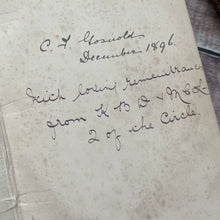 C. F. Griswold
December 1896.
With loving remembrance
from K B D & M E L
2 of the Circle.